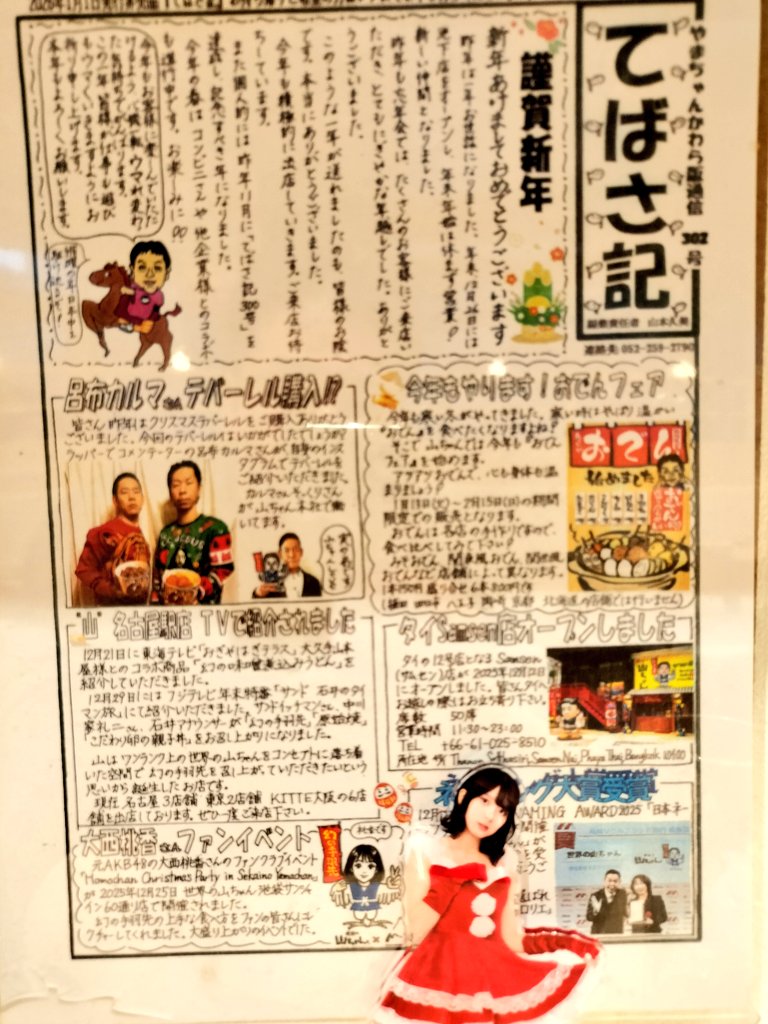 やまちゃんかわら版通信 302号
てばさ記
編集責任者 山本久美
連絡先 052-259-2790
謹賀新年
新年あけましておめでとうございます
昨年は一年お世話になりました。年末12月26日には
池下店をオープンし、年末年始は休まず営業!
新しい仲間となりました。
昨年も忘年会では、たくさんのお客様にご来店い
ただき、とてもにぎやかな年越しでした。ありがと
うございました。
このような一年が送れましたのも、皆様のお陰
です。本当にありがとうございました。
今年も積極的に出店していきます。ご来店お待
ちしています。
また個人的には昨年11月に、「てばさ記300号」を
達成し、記念すべき年になりました。
今年の春は、コンビニさんや他企業様とのコラボ
も進行中です。お楽しみに!?
今年もお客様に喜んでいただ
本年もよろしくお願いします。
呂布カルマさんテバーレル購入!?
皆さん昨年はクリスマステバーレルをご購入ありがとう
ございました。今回のテバーレルはいかがでしたでしょうか?
ラッパーでコメンテーターの呂布カルマさんが自身のインス
タグラムでテバーレルを
ご紹介いただきました。
カルマさんそっくりさん
が山ちゃん本社で働
いてます。
今年もやります!おでんフェア
今年も寒い冬がやってきました。寒い時はやっぱり温かい
『おでん』を食べたくなりますよね?
そこで山ちゃんでは今年も『おでん
フェア』を始めます。
アツアツおでんで、心も身体も温
まりましょう♪
の期間
限定での販売となります。
おでんは各店の手作りですので、
食べ比べしてみて下さい♪
みそおでん 関東風おでん、関西風
おでんなど店舗によって異なります。
おでん
始めました
"山" 名古屋駅店 TVで紹介されました
12月21日に東海テレビ「おぎやはぎテラス」大久手山本
屋様とのコラボ商品「幻の味噌煮込みうどん」を
紹介していただきました。
12月29日にはフジテレビ年末特番「サンド 石井のタイ
マン旅」にてご紹介いただきました。サンドイッチマンさん、中川
家礼二さん、石井アナウンサーが「幻の手羽先」「原始焼」
「こだわり卵の親子丼」をお召し上がりになりました。
山はワンランク上の世界の山ちゃんをコンセプトに落ち着
いた空間で幻の手羽先をお召し上がっていただきたいという
思いから誕生したお店です。
現在名古屋3店舗 東京2店舗 KITTE大阪の6店
舗を出店しております。ぜひ一度ご来店下さい。
タイSamsen店オープンしました
タイの12号店となるSamsen
(サムセン)店が2025年12月12日
にオープンしました。皆さんタイへ
お越しの際はお立ち寄り下さい。
席数 50席
営業時間 11:30~23:00
TEL +66-61-025-8510
大西桃香さんファンイベント
元AKB48の大西桃香さんのファンクラブイベント
「Momochan Christmas Party in Sekaino Yamachan」
が2025年12月25日世界の山ちゃん池袋サンシャ
イン60通り店で開催されました。
幻の手羽先の上手な食べ方をファンの皆さんにレ
クチャーしてくれました。大盛り上がりのイベントでした。
大賞受賞
AMING AWARD2025「日本ネー
世界の山ちゃん